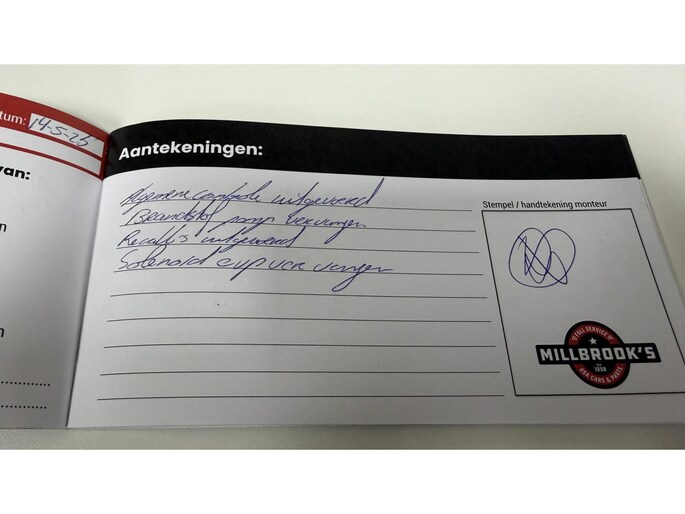 tum: 14-5-25
van:
n
n
Aantekeningen:
Algemene controle uitgevoerd
Brandstof pomp vervangen
Recall's uitgevoerd
Solenoid evap vervangen
Stempel / handtekening monteur
FULL SERVICE
MILLBROOK'S
EST. 1998
USA CARS & PARTS